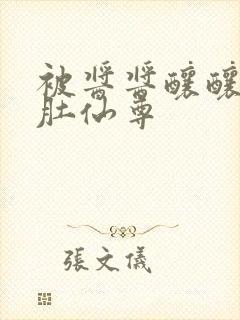 被醬醬釀釀
肚仙尊
張文儀